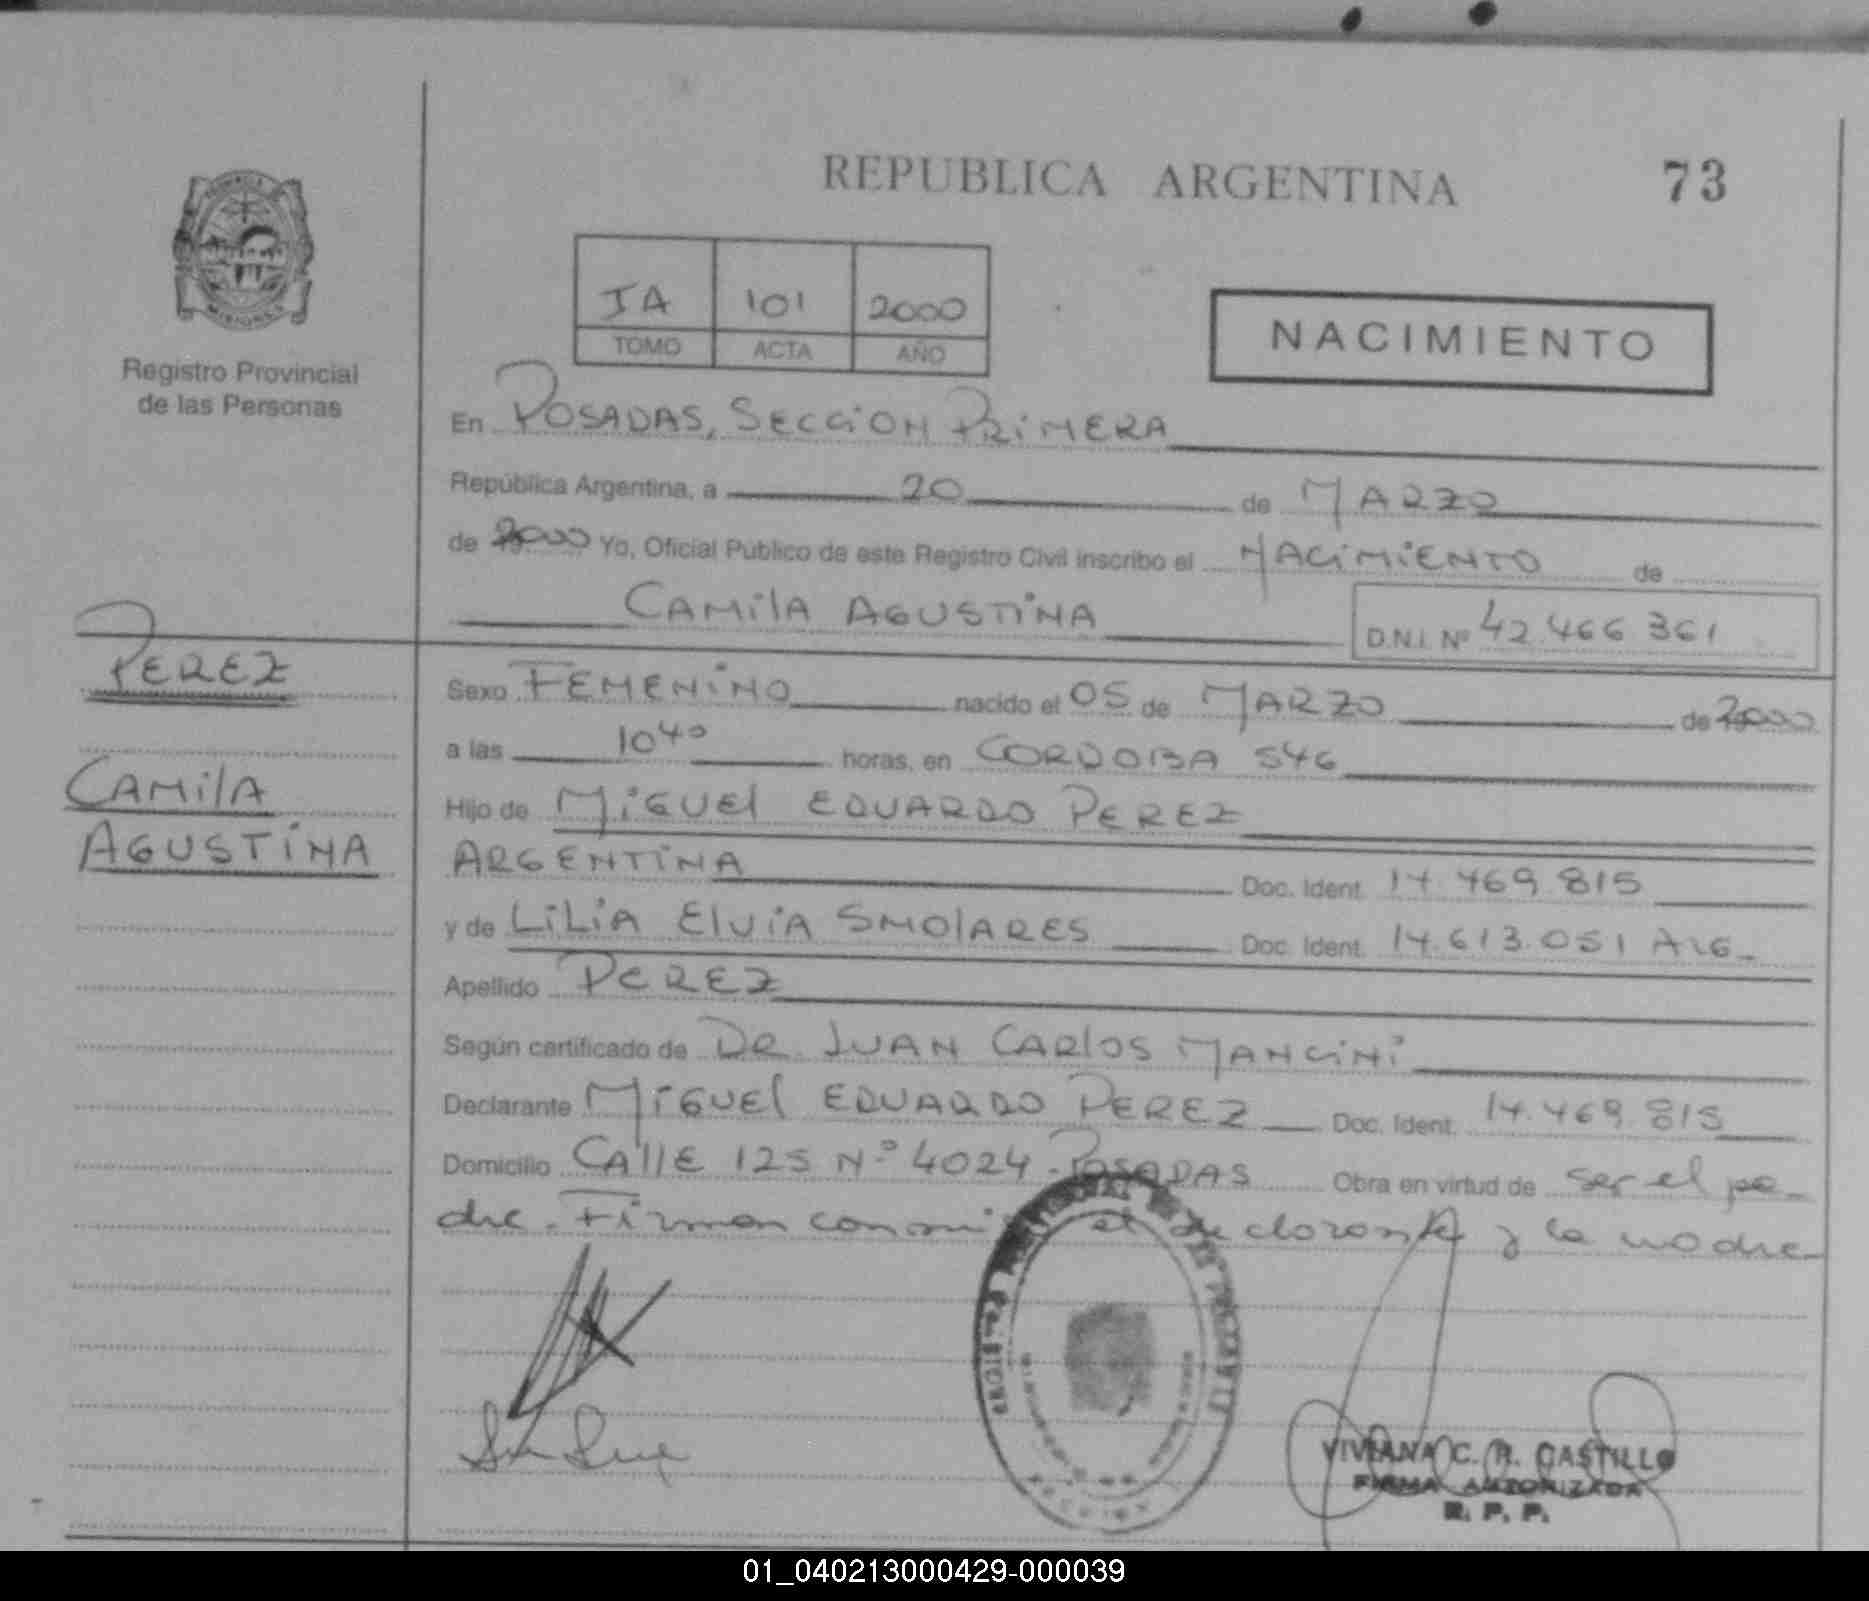 REPUBLICA ARGENTINA 73
MISIONES
Registro Provincial
de las Personas
JA 101 2000
TOMO ACTA AÑO
NACIMIENTO
En POSADAS, SECCION PRIMERA
República Argentina, a 20 de MARZO
de 2000 Yo, Oficial Público de este Registro Civil inscribo el NACIMIENTO de
CAMILA AGUSTINA D.N.I. Nº 42.466.361
PEREZ
CAMILA
AGUSTINA
Sexo FEMENINO nacido el 05 de MARZO de 2000
a las 10 40 horas, en CORDOBA 546
Hijo de MIGUEL EDUARDO PEREZ
ARGENTINA Doc. Ident. 14.469.815
y de LILIA ELVIA SMOLARES Doc. Ident. 14.613.051 ARG.
Apellido PEREZ
Según certificado de DR. JUAN CARLOS MANCINI
Declarante MIGUEL EDUARDO PEREZ Doc. Ident. 14.469.815
Domicilio CALLE 125 Nº 4024 - POSADAS Obra en virtud de ser el pa-
dre. Firman conmigo el declarante y la madre
VIVIANA C. R. CASTILLO
FIRMA AUTORIZADA
R. P. P.
01_040213000429-000039